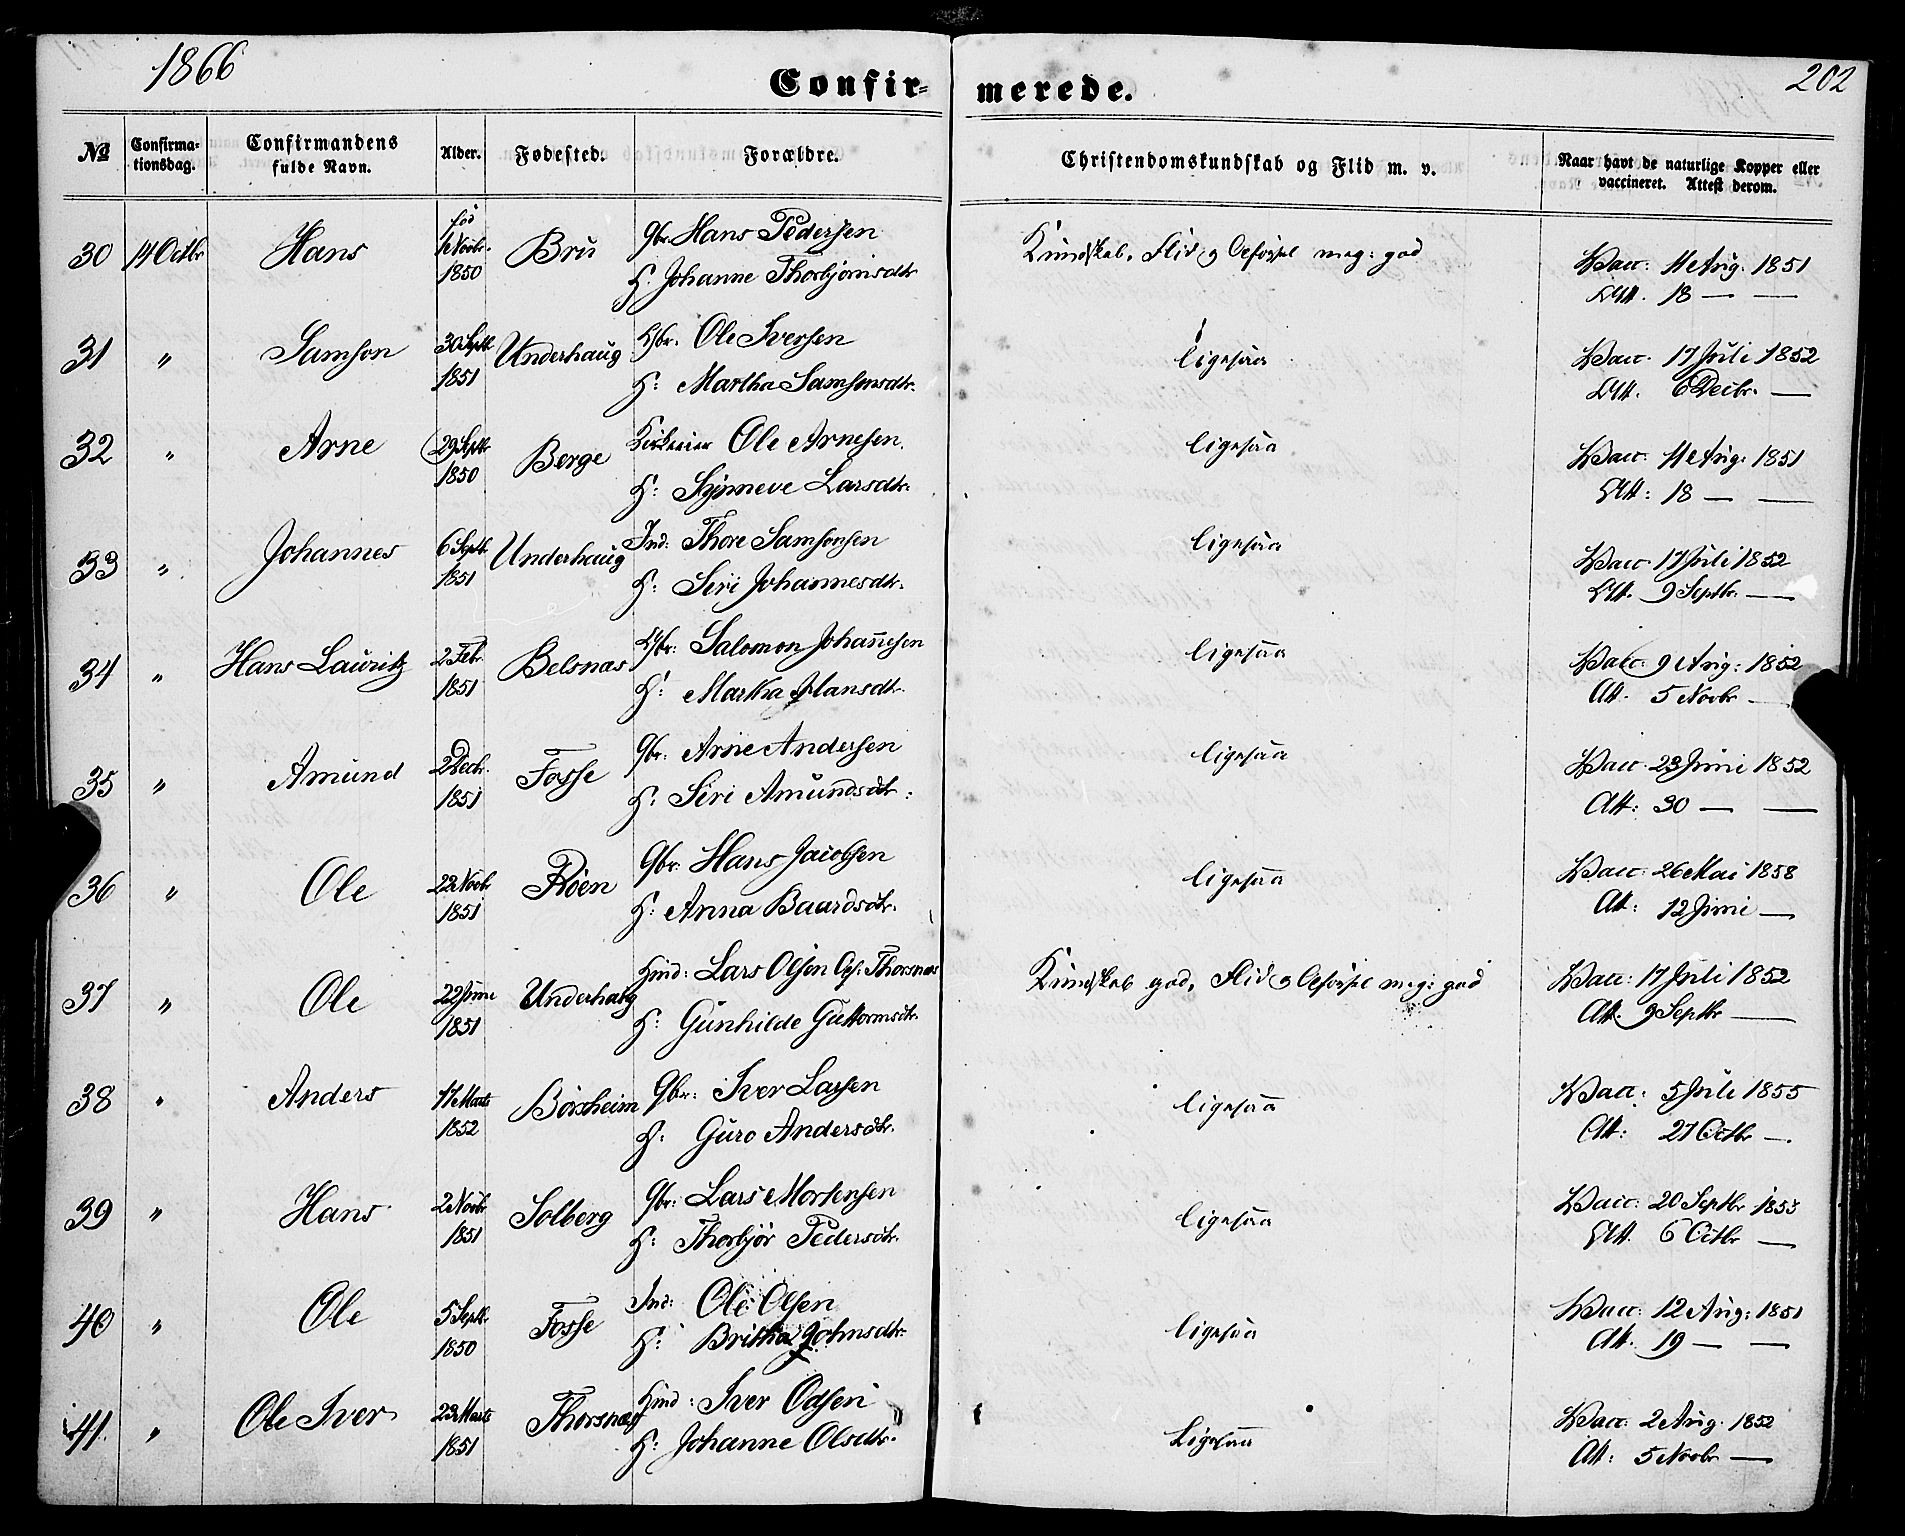 1866
Confir-merede.
202
No
Confirma-tionsdag.
Confirmandens fulde Navn.
Alder.
Fødested.
Forældre.
Christendomskundskab og Flid m. v.
Naar havt de naturlige Kopper eller vaccineret. Attest derom.
30 14 Octbr Hans fød 1 Novbr. 1850 Bru Gbr. Hans Pedersen Kundskab, Flid og Opførsel meg: god Vacc: 11 Aug: 1851
H. Johanne Thorbjørnsdtr Att. 18 — —
31 " Samson 30 Septbr 1851 Underhaug Ole Iversen ligesaa Vacc. 17 Juli 1852
H: Martha Samsonsdtr. Att. 6 Decbr. —
32 " Arne 29 Septbr 1850 Berge Ole Arnesen ligesaa Vacc: 11 Aug: 1851
H: Synneve Larsdtr. Att: 18 — —
33 " Johannes 6 Septbr. 1851 Underhaug Ind: Thore Samsonsen ligesaa Vacc. 17 Juli 1852
H: Siri Johannesdtr. Att. 9 Septbr. —
34 " Hans Lauritz 2 Febr 1851 Belsnæs Salomon Johannesen ligesaa Vacc: 9 Aug: 1852
H: Martha Hansdtr. Att. 5 Novbr —
35 " Amund 2 Decbr. 1851 Fosse Gbr. Arne Andersen ligesaa Vacc. 23 Juni 1852
H: Siri Amundsdtr: Att: 30 — —
36 " Ole 22 Novbr 1851 Røen Gbr. Hans Jacobsen ligesaa Vacc: 26 Mai 1858
H: Anna Baardsdtr. Att: 12 Juni —
37 " Ole 22 Juni 1851 Underhaug Hmd: Lars Olsen Opf: Thorsnæs Kundskab god, Flid og Opførsel meg: god Vacc: 17 Juli 1852
H: Gunhilde Guttormsdtr. Att. 9 Septbr —
38 " Anders 17 Marts 1852 Børsheim Gbr.: Iver Larsen ligesaa Vacc: 5 Juli 1855
H: Guro Andersdtr. Att: 21 Octbr —
39 " Hans 2 Novbr 1851 Solberg Gbr: Lars Mortensen ligesaa Vacc: 20 Septbr 1853
H: Thorbjør Pedersdtr. Att. 6 Octbr —
40 " Ole 5 Septbr. 1850 Fosse Ind: Ole Olsen ligesaa Vacc: 12 Aug: 1851
H: Britha Johnsdtr. Att. 19 — —
41. " Ole Iver 23 Marts 1851 Thorsnæs Hmd: Iver Odsen Ligesaa Vacc: 2 Aug. 1852
H: Johanne Olsdtr. Att: 5 Novbr —